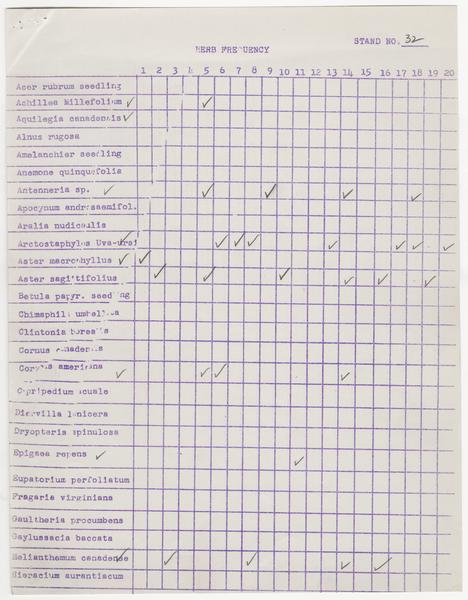 STAND NO. 32
HERB FREQUENCY
1 2 3 4 5 6 7 8 9 10 11 12 13 14 15 16 17 18 19 20
Acer rubrum seedling
Achillea Millefolium ✓ ✓
Aquilegia canadensis ✓
Alnus rugosa
Amelanchier seedling
Anemone quinquefolia
Antenneria sp. ✓ ✓ ✓ ✓ ✓
Apocynum androsaemifol.
Aralia nudicaulis
Arctostaphylos Uva-ursi ✓ ✓ ✓ ✓ ✓ ✓ ✓ ✓
Aster macrophyllus ✓ ✓
Aster sagittifolius ✓ ✓ ✓ ✓ ✓ ✓
Betula papyr. seedling
Chimaphila umbellata
Clintonia borealis
Cornus canadensis
Corylus americana ✓ ✓ ✓ ✓
Cypripedium acuale
Diervilla lonicera
Dryopteris spinulosa
Epigaea repens ✓ ✓
Eupatorium perfoliatum
Fragaria virginiana
Gaultheria procumbens
Gaylussacia baccata
Helianthemum canadense ✓ ✓ ✓ ✓ ✓
Hieracium aurantiacum